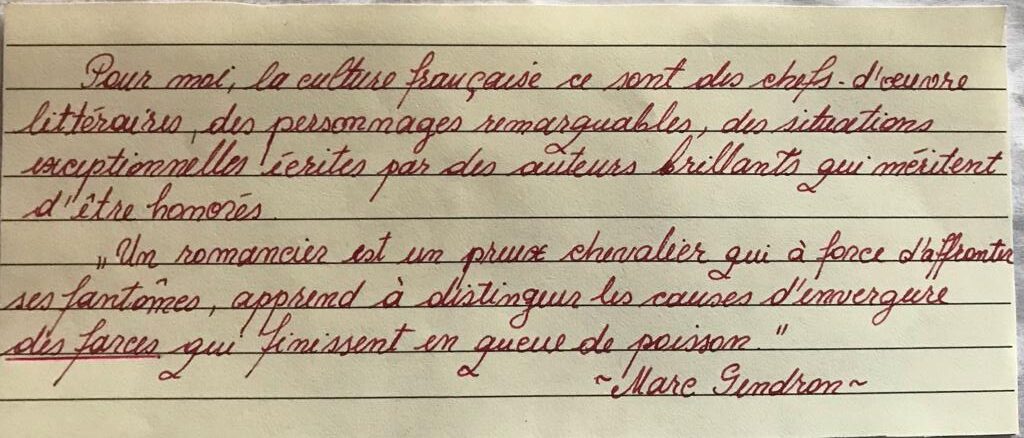 Pour moi, la culture française ce sont des chefs-d'œuvre
littéraires, des personnages remarquables, des situations
exceptionnelles écrites par des auteurs brillants qui méritent
d'être honorés.
„Un romancier est un preux chevalier qui à force d'affronter
ses fantômes, apprend à distinguer les causes d'envergure
des farces qui finissent en queue de poisson."
~Marc Gendron~